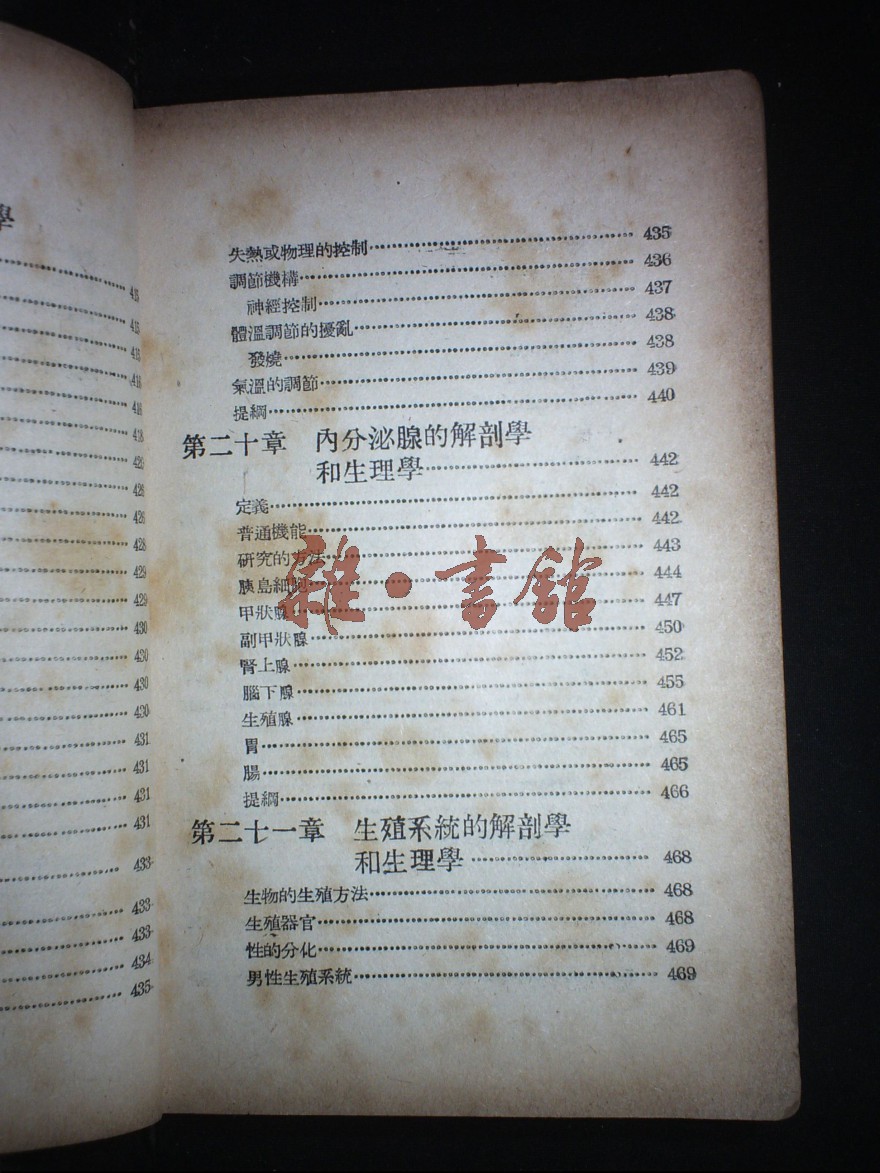 學
415
415
415
416
416
418
425
426
426
428
429
429
430
430
430
430
431
431
431
431
433
433
433
434
435
失熱或物理的控制 435
調節機構 436
神經控制 437
體溫調節的擾亂 438
發燒 438
氣溫的調節 439
提綱 440
第二十章 內分泌腺的解剖學
和生理學 442
定義 442
普通機能 442
研究的方法 443
胰島細胞 444
甲狀腺 447
副甲狀腺 450
腎上腺 452
腦下腺 455
生殖腺 461
胃 465
腸 465
提綱 466
第二十一章 生殖系統的解剖學
和生理學 468
生物的生殖方法 468
生殖器官 468
性的分化 469
男性生殖系統 469
雜·書館